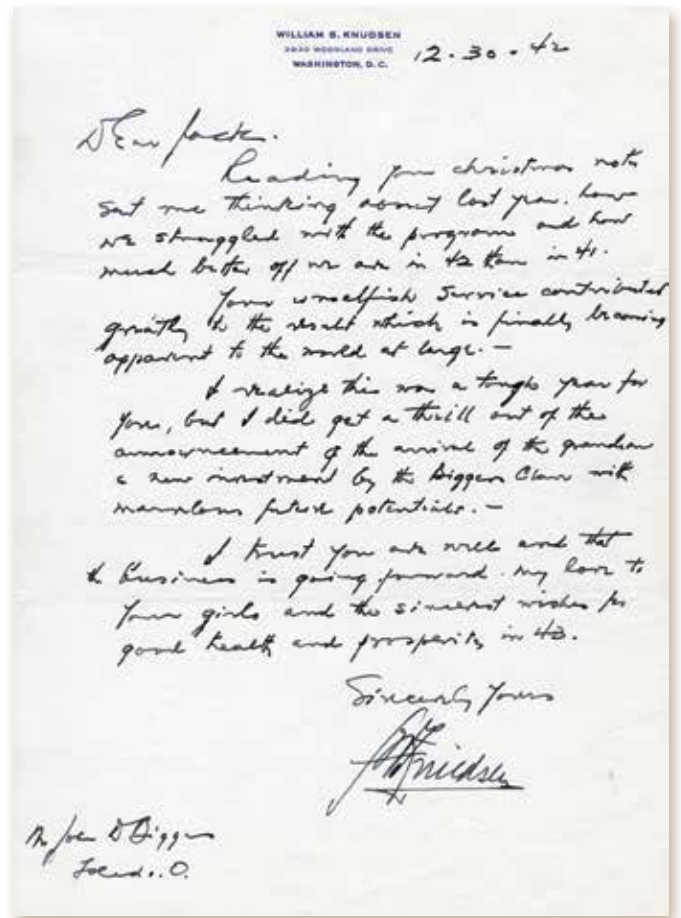 WILLIAM S. KNUDSEN
2930 WOODLAND DRIVE
WASHINGTON, D. C.
12-30-42
Dear Jack.
Reading your christmas note
set me thinking about last year. how
we struggled with the programe and how
much better off we are in 42 than in 41.
Your unselfish service contributed
greatly to the result which is finally becoming
apparent to the world at large. —
I realize this was a tough year for
you, but I did get a thrill out of the
announcement of the arrival of the grandson
a new investment by the Biggers Clan with
marvelous future potentials. —
I trust you are well and that
the business is going forward. my love to
Your girls and the sincerest wishes for
good health and prosperity in 43.
Sincerely Yours
Knudsen
Mr John D Biggers
Toledo. O.